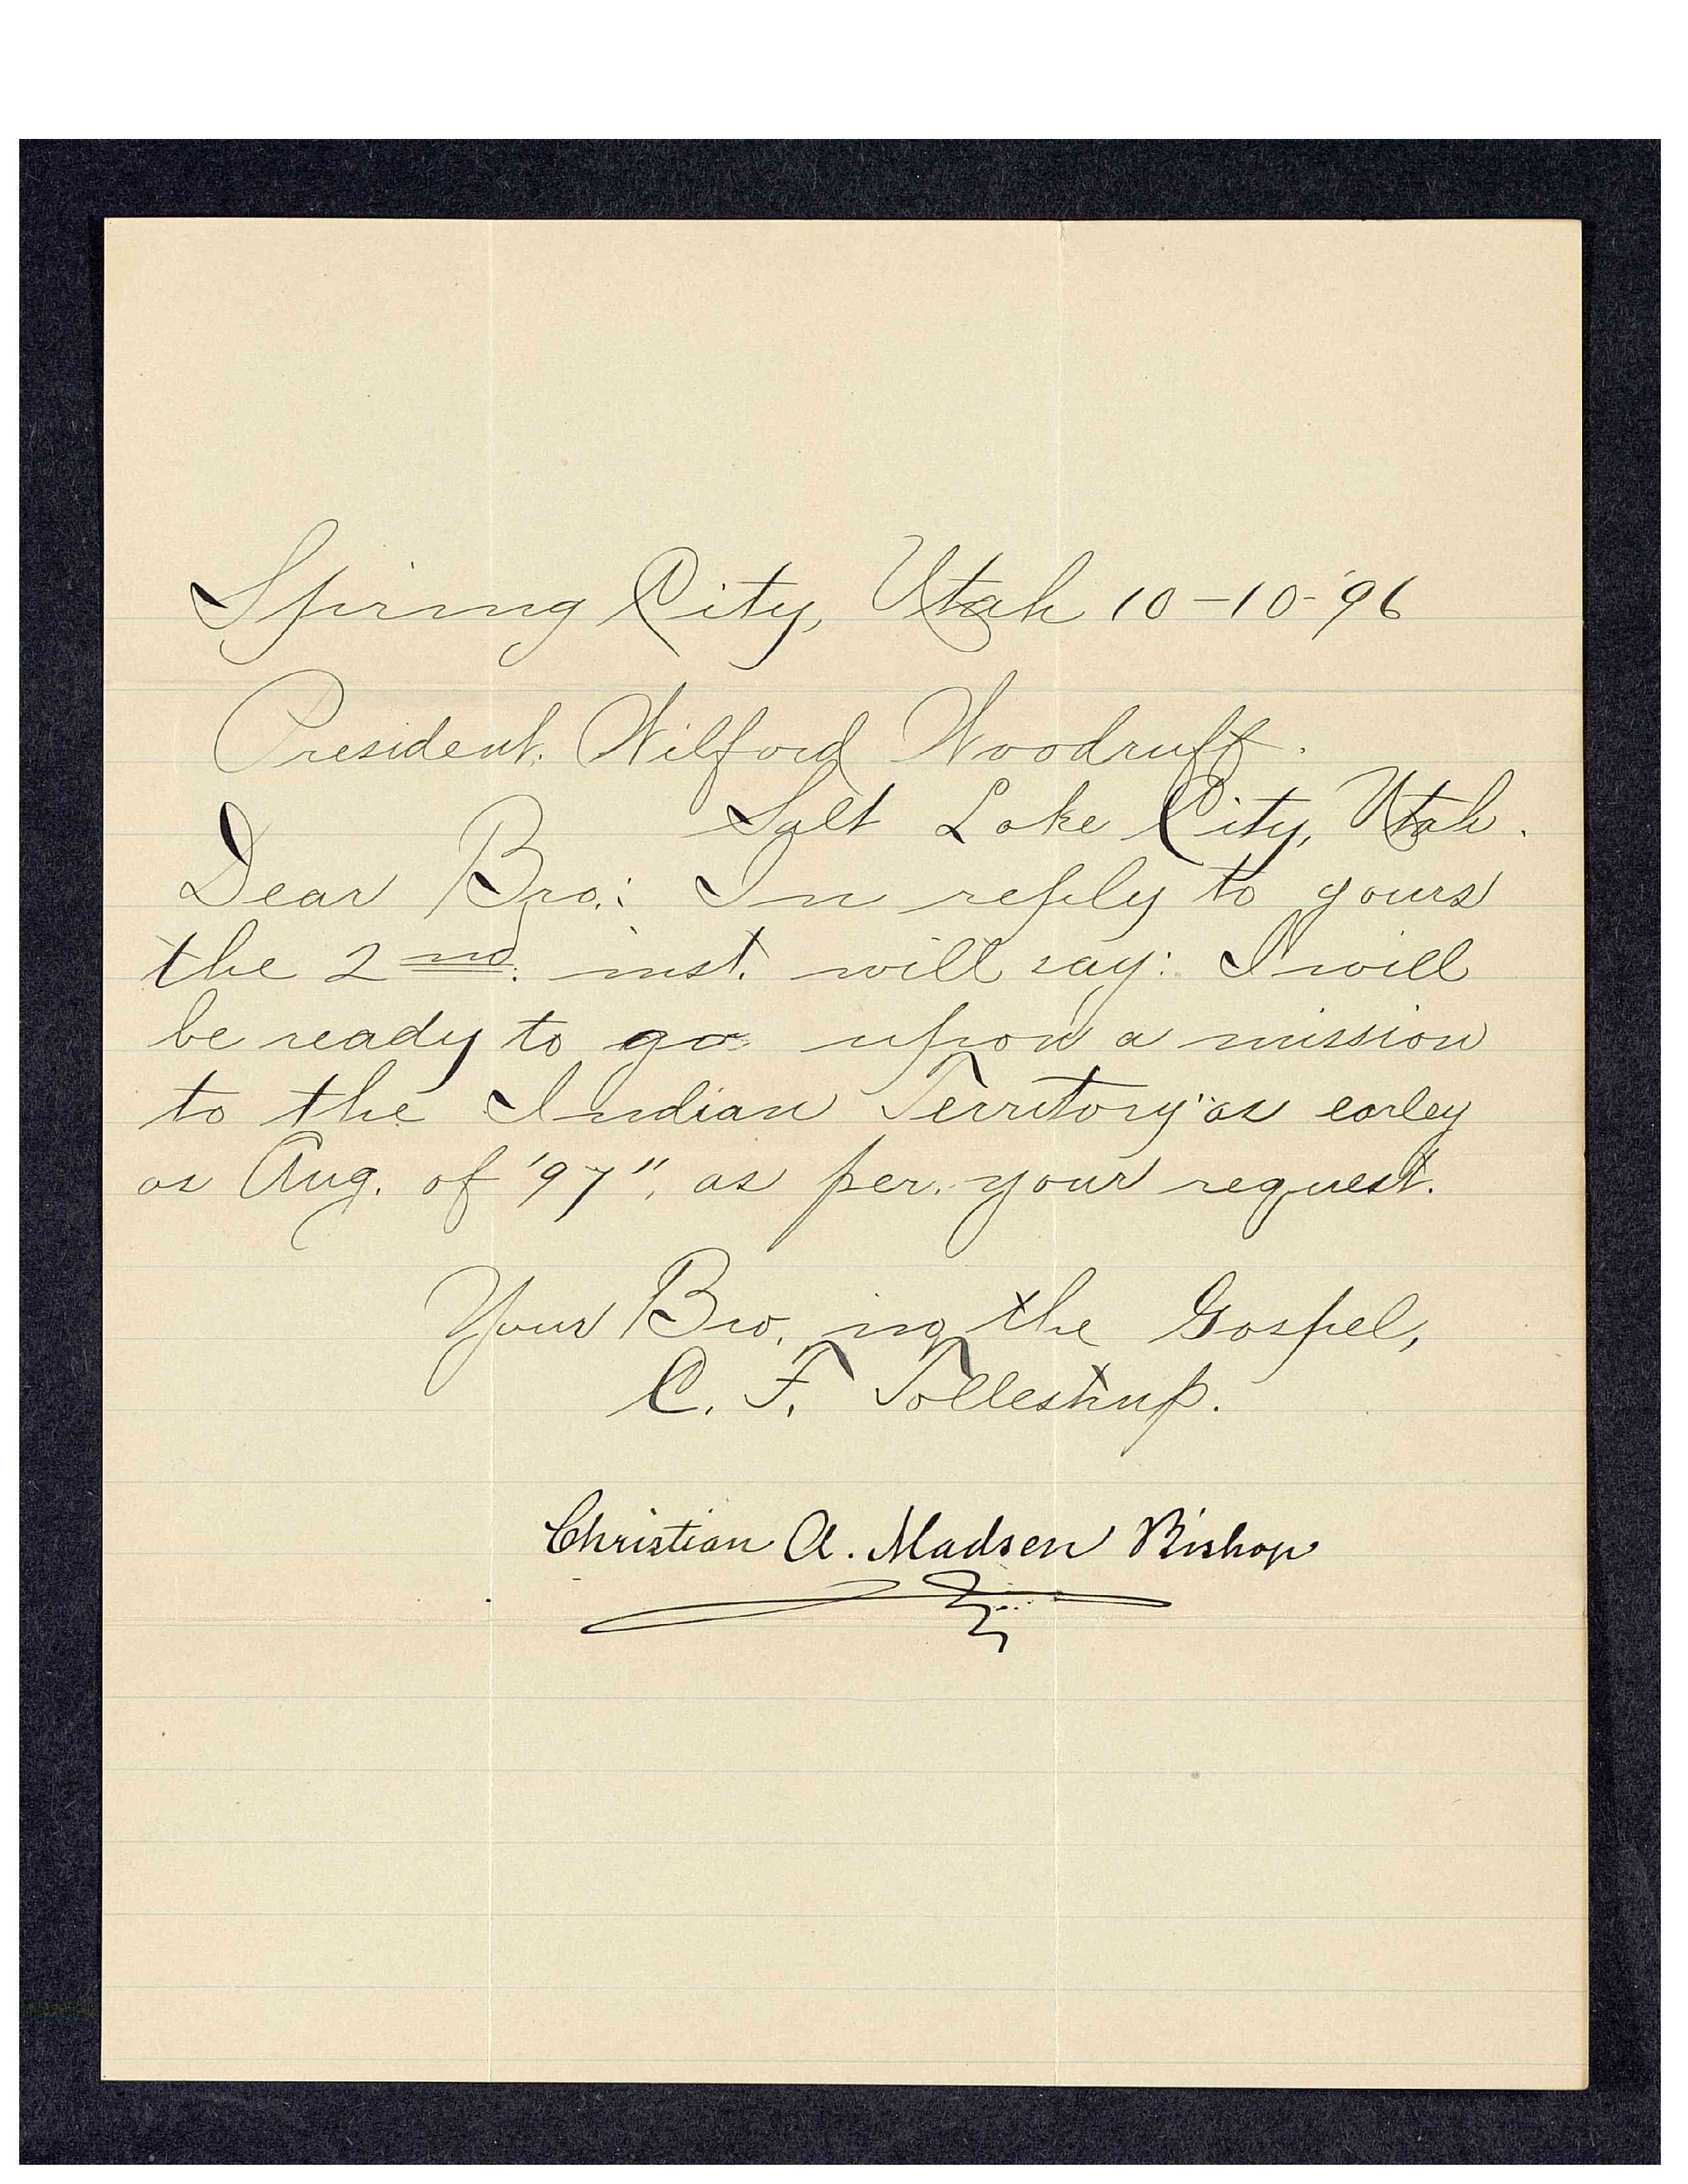 Spring City, Utah 10-10-'96
President. Wilford Woodruff.
Salt Lake City, Utah.
Dear Bro.: In reply to yours
the 2nd. inst. will say: I will
be ready to go upon a mission
to the Indian Territory as earley
as Aug. of '97", as per. your request.
Your Bro. in the Gospel,
C. F. Tollestrup.
Christian A. Madsen Bishop